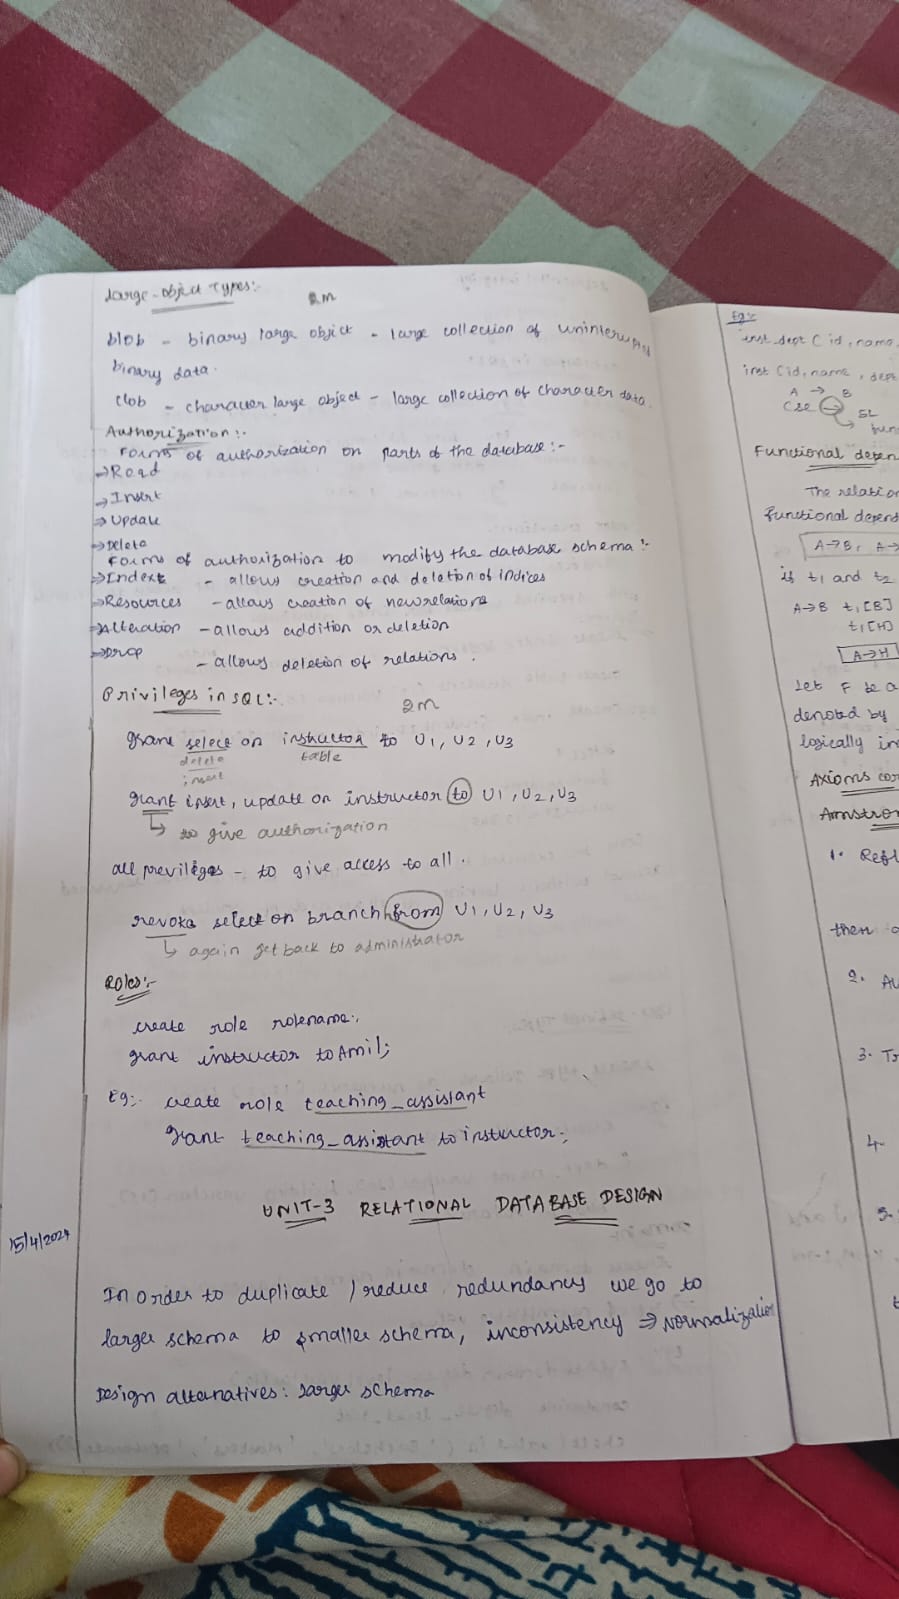 Large-object Types:-
2m
blob - binary large object - large collection of uninterrupted
binary data.
clob - character large object - large collection of character data.
Authorization:-
Forms of authorization on parts of the database:-
→Read
→Insert
→Update
→Delete
Forms of authorization to modify the database schema:-
→Index - allows creation and deletion of indices
→Resources - allows creation of new relations
→Alteration - allows addition or deletion
→Drop - allows deletion of relations.
Privileges in SQL:-
2m
grant select on instructor to U1, U2, U3
delete table
insert
grant insert, update on instructor to U1, U2, U3
↳ to give authorization
all previleges - to give access to all.
revoke select on branch from U1, U2, U3
↳ again get back to administrator
Roles:-
create role rolename;
grant instructor to Amil;
Eg:- create role teaching_assistant
grant teaching_assistant to instructor;
UNIT-3 RELATIONAL DATABASE DESIGN
15/4/2024
In order to duplicate / reduce redundancy we go to
larger schema to smaller schema, inconsistency ⇒ Normalization
Design alternatives: larger schema
Eg:-
inst_dept ( id, name,
inst (id, name, dept
A → B
CSE → SL
fun
Functional depen
The relation
functional depend
A→B, A→
if t1 and t2
A→B t1[B]
t1[H]
A→H
Let F be a
denoted by
logically im
Axioms
Armstro
1. Refl
then
2. Au
3. Tr
4.
5.